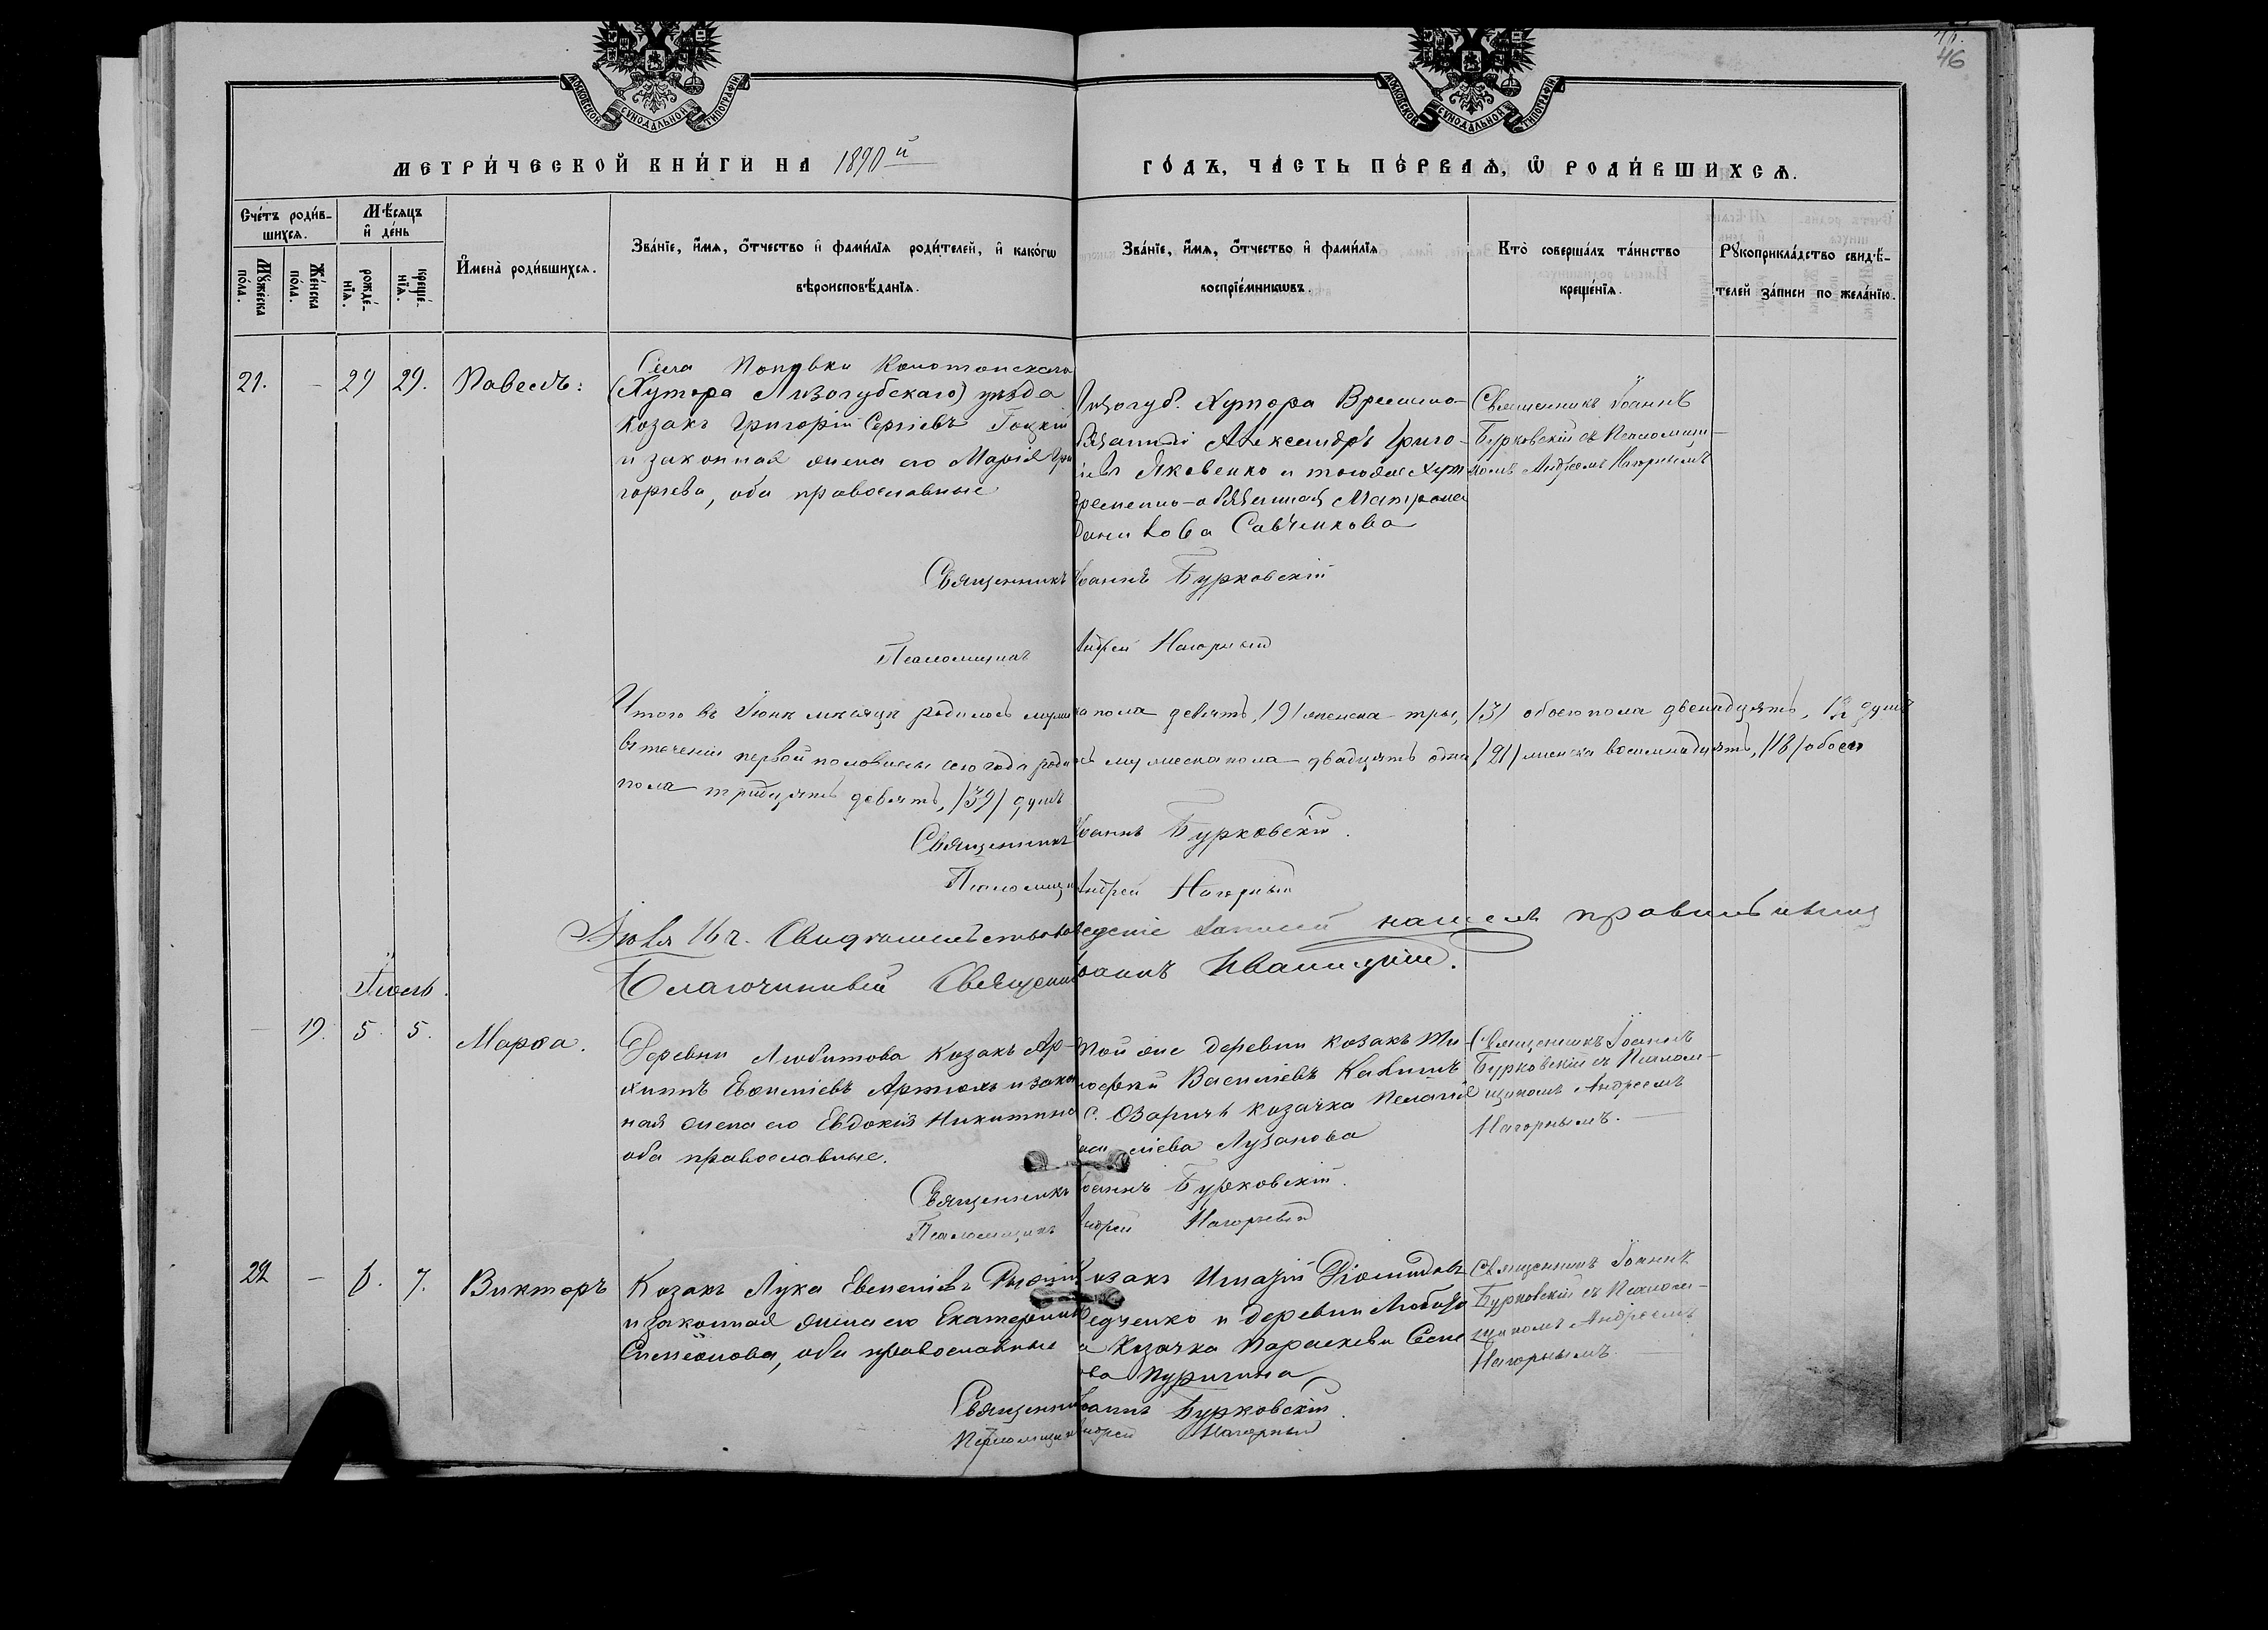 46
МОСКОВСКОЙ СѴНОДАЛЬНОЙ ТИПОГРАФІИ
МОСКОВСКОЙ СѴНОДАЛЬНОЙ ТИПОГРАФІИ
МЕТРИ́ЧЕСКОЙ КНИ́ГИ НА 1890й ГО́ДЪ, ЧА́СТЬ ПЕ́РВАѦ, Ѿ РОДИ́ВШИХСѦ.
Сче́тъ роди́в-
шихсѧ.
Мѣ́сѧцъ
и҆ де́нь
Мꙋ́жеска
по́ла.
Же́нска
по́ла.
рожде́-
нїѧ.
креще́-
нїѧ.
И҆мена̀ роди́вшихсѧ.
Зва́нїе, и҆́мѧ, ѻ҆́тчество и҆ фами́лїѧ роди́телей, и҆ како́гѡ
вѣроисповѣ́данїѧ.
Зва́нїе, и҆́мѧ, ѻ҆́тчество и҆ фами́лїѧ
воспрїе́мникѡвъ.
Кто̀ соверша́лъ та́инство
креще́нїѧ.
Рꙋкоприкла́дство свидѣ́-
телей за́писи по жела́нїю.
21. - 29 29. Павелъ:
Села Поповки Конотопскаго
(Хутора Лизогубскаго) уѣзда
козакъ Григорій Сергіевъ Гоцкій
и законная жена его Марія Гри
горьева, оба православные
Лизогуб. Хутора Временно-
обязанный Александръ Григо-
рьевъ Яковенко и тогоже Хут
временно-обязанная Матрона
Данилова Савченкова
Священникъ Іоаннъ
Бурковскій съ Псаломщи-
комъ Андреемъ Нагорнымъ
Священникъ Іоаннъ Бурковскій
Псаломщикъ Андрей Нагорный
Итого въ Іюнѣ мѣсяцѣ родилось мужска пола девять, /9/ женска - три, /3/ обоего пола двенадцать, 12 душъ
въ теченіи первой половины сего года родилось мужеска пола - двадцать одна /21/ женска восемнадцять, /18/ обоего
пола тридцять девять, /39/ душъ
Священникъ Іоаннъ Бурковскій.
Псаломщикъ Андрей Нагорный
Іюля 16 г. веденіе записей нашелъ правильнымъ
Благочинный Священникъ Іоаннъ
Іюль.
- 19. 5. 5. Марѳа.
Деревни Любитова Козакъ Ар-
хиппъ Евѳиміевъ Артюхъ и закон
ная жена его Евдокія Никитина
оба православные.
Той же деревни козакъ Ти-
моѳей Василіевъ Калишъ
с. Озаричъ козачка Пелагія
Василіева Лузанова
Священникъ Іоаннъ
Бурковскій съ Псалом-
щикомъ Андреемъ
Нагорнымъ.
Священникъ Іоаннъ Бурковскій.
Псаломщикъ Андрей Нагорный
22 - 6. 7. Викторъ
Козакъ Лука Евѳиміевъ
и законная жена его Екатерина
Симеонова, оба православные
Козакъ Игнатій Діомидовъ
и деревни Любито
ва Козачка Параскева Семе
нова Пуригина
Священникъ Іоаннъ
Бурковскій съ Псалом-
щикомъ Андреемъ
Нагорнымъ
Священникъ Іоаннъ Бурковскій.
Псаломщикъ Андрей Нагорный